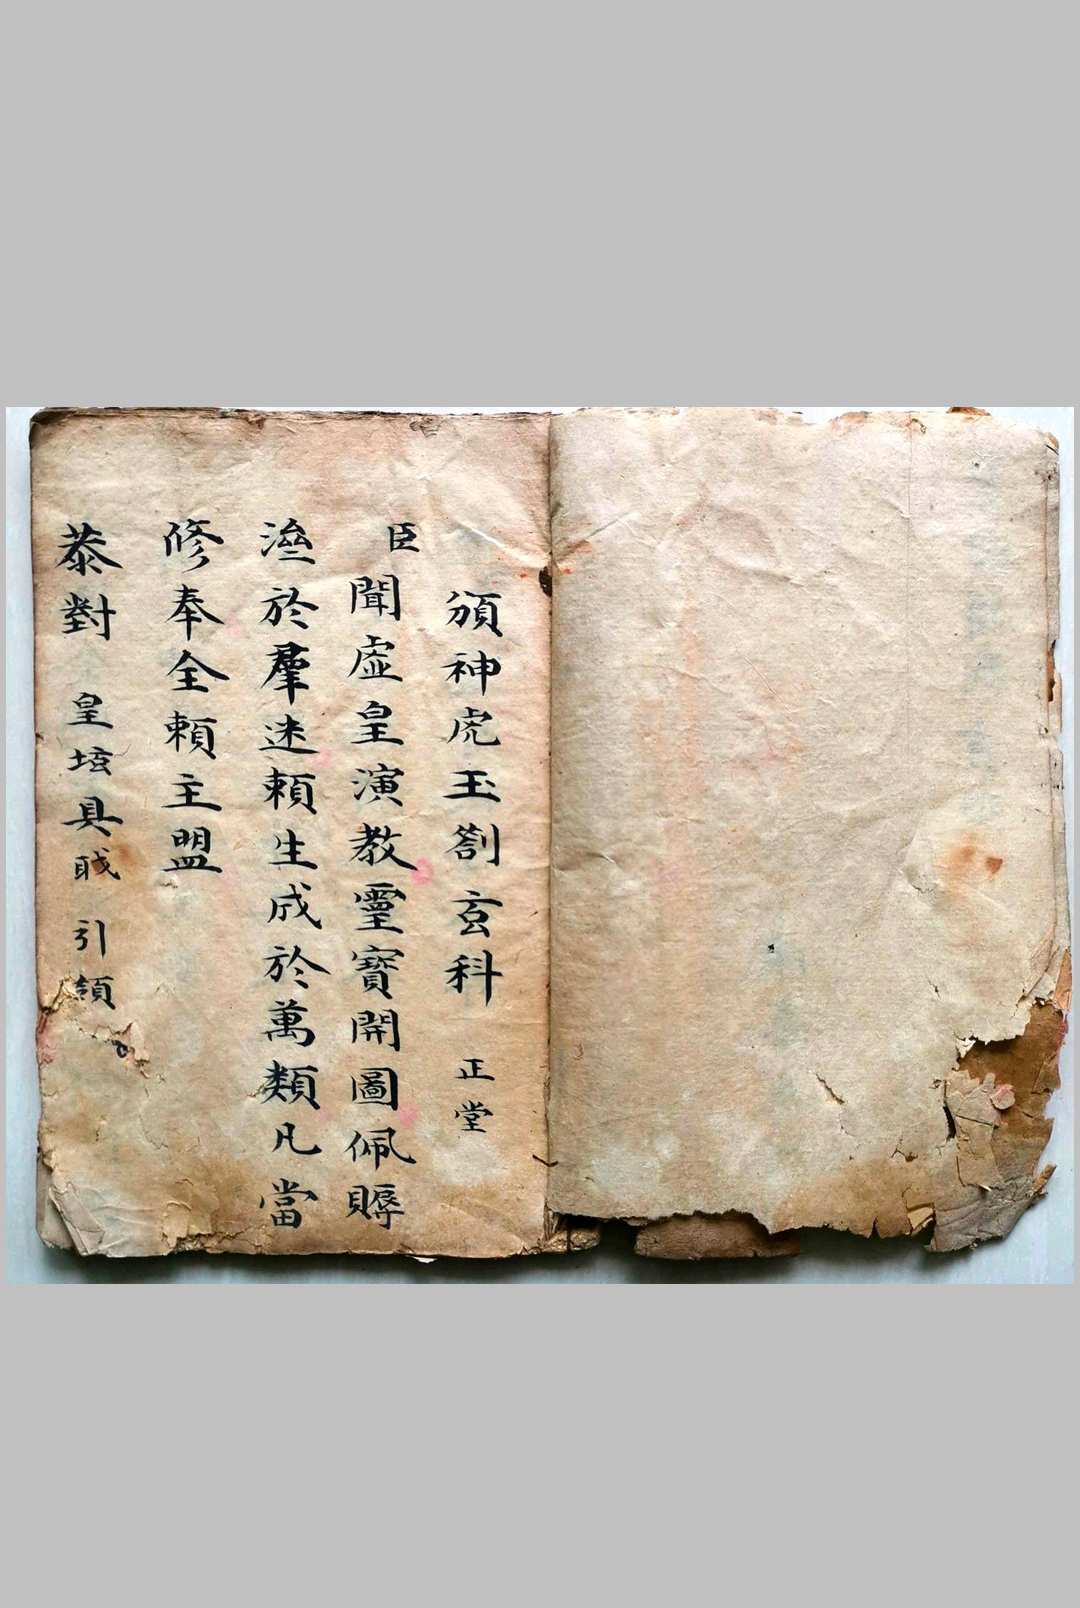 頒神虎玉劄玄科 正堂
臣聞虛皇演教靈寶開圖佩
於羣迷頼生成於萬類凡當
修奉全頼主盟
恭對 皇壇具職 引領